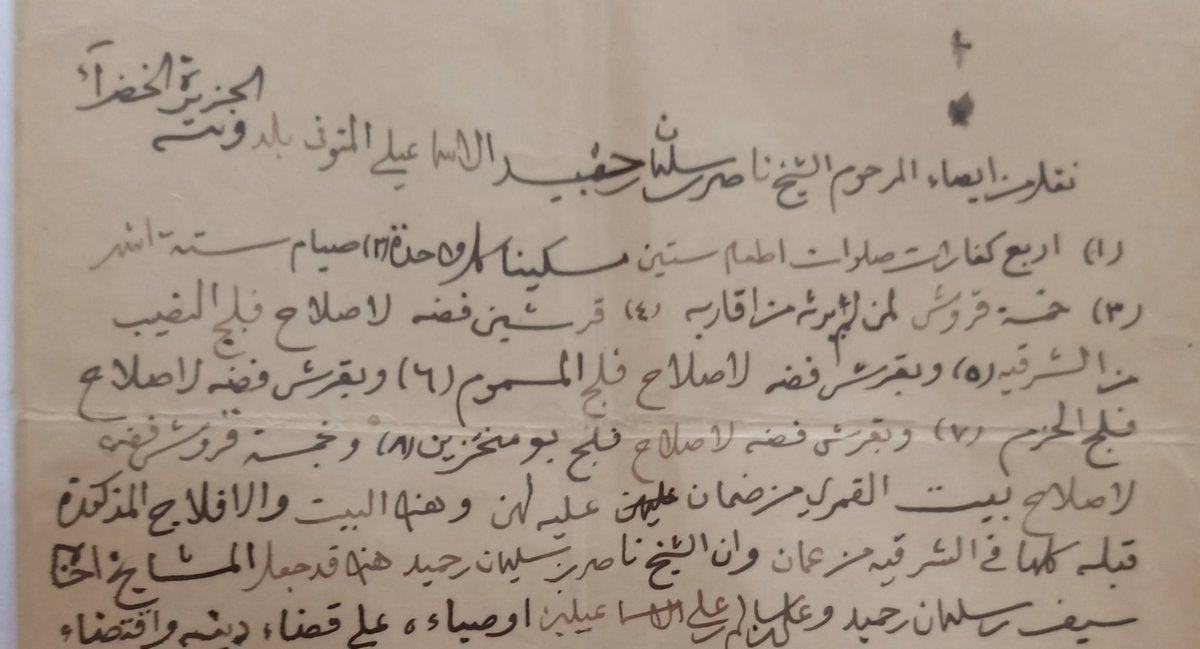 الجزيرة الخضرآء
نقل من ايصاء المرحوم الشيخ ناصر بن سليمان بن حميد الاسماعيلي المتوفى بلد ويته
(١) اربع كفارات صلوات اطعام ستين مسكينا كل واحدة (٢) صيام ستة اشهر
(٣) خمسة قروش لمن لم يرثه من اقاربه (٤) قرشين فضه لاصلاح فلج النصيب
من الشرقيه (٥) وبقرش فضه لاصلاح فلج المسموم (٦) وبقرش فضه لاصلاح
فلج الحزم (٧) وبقرش فضه لاصلاح فلج بو منخرين (٨) وبخمسة قروش فضه
لاصلاح بيت القمري من ضمان عليه لهن وهذا البيت والافلاج المذكورة
قبله كلها في الشرقيه من عمان وان الشيخ ناصر بن سليمان بن حميد هذا قد جعل المشايخ اخاه
سيف بن سليمان بن حميد و بن علي الاسماعيليين اوصياءه على قضاء دينه واقتضاء